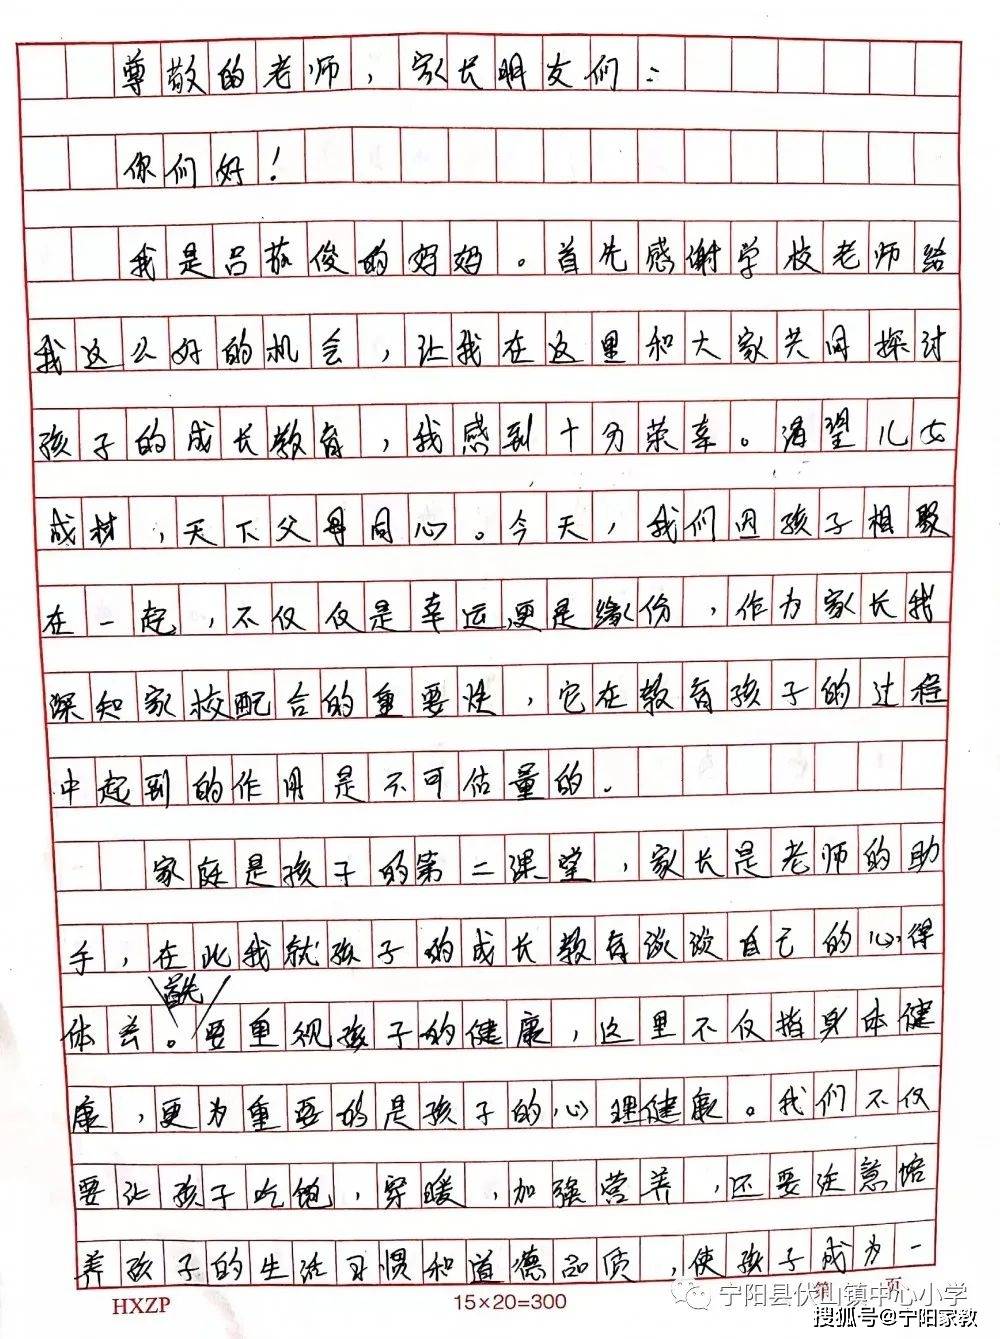 尊敬的老师,家长朋友们:
你们好!
我是吕俊的妈妈。首先感谢学校老师给
我这么好的机会,让我在这里和大家共同探讨
孩子的成长教育,我感到十分荣幸。渴望儿女
成材,天下父母同心。今天,我们因孩子相聚
在一起,不仅仅是幸运,更是缘份,作为家长我
深知家校配合的重要性,它在教育孩子的过程
中起到的作用是不可估量的。
家庭是孩子的第二课堂,家长是老师的助
手,在此我就孩子的成长教育谈谈自己的心得
首先
体会。要重视孩子的健康,这里不仅指身体健
康,更为重要的是孩子的心理健康。我们不仅
要让孩子吃饱,穿暖,加强营养,还要注意培
养孩子的生活习惯和道德品质,使孩子成为一
HXZP
15×20=300
第 页
宁阳县伏山镇中心小学
搜狐号@宁阳家教